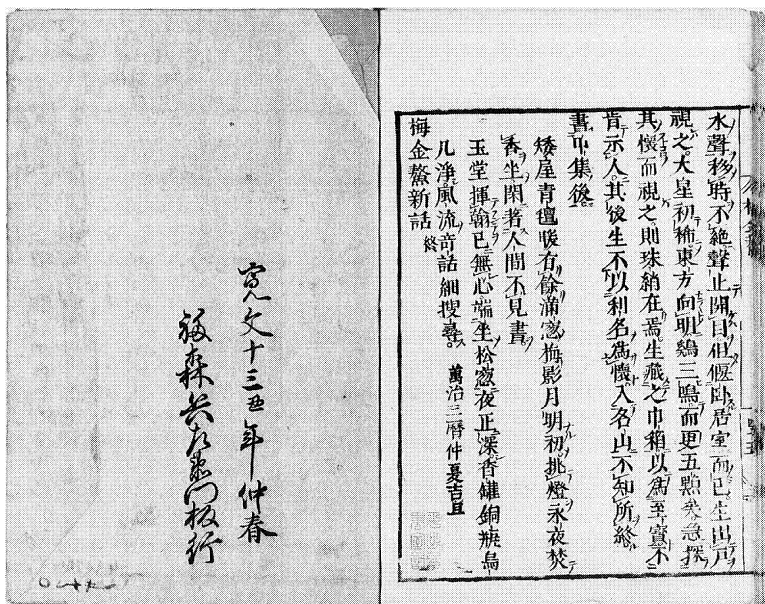 水聲移時不絶聲止開目但偃臥居室而已生出戸
視之大星初稀東方向明鷄三鳴而更五點矣急探
其懷而視之則珠綃在焉生藏之巾箱以爲至寶不
肯示人其後生不以利名爲懷入名山不知所終
書甲集後
矮屋青氊暖有餘滿窓梅影月明初挑燈永夜焚
香坐閑著人間不見書
玉堂揮翰已無心端坐松窓夜正深香鑵銅甁烏
几淨風流奇話細搜尋
萬治三暦仲夏吉旦
梅金鰲新話終
寛文十三丑年仲春
福森兵左衞門板行